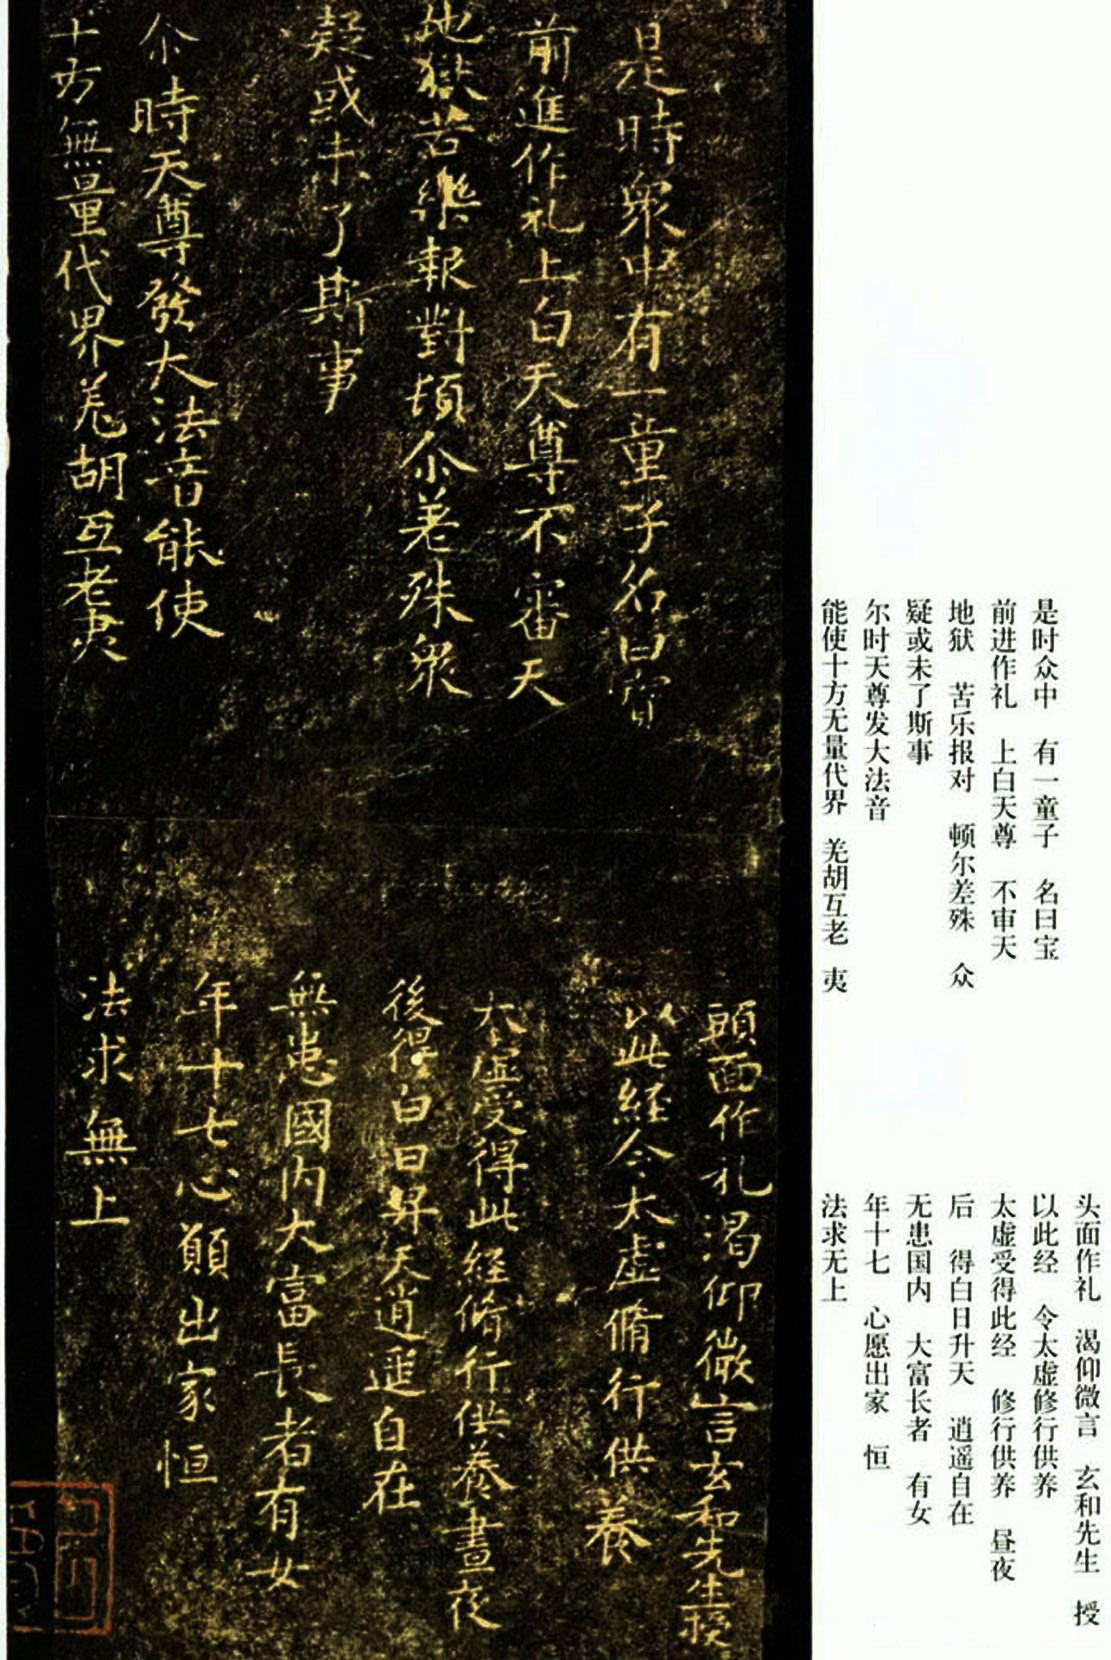 是時眾中有一童子名曰寶
前進作礼上白天尊不審天
地獄苦樂報對頓尒差殊眾
疑或未了斯事
尒時天尊發大法音能使
十方無量代界羌胡互老夷
頭面作礼渴仰微言玄和先生授
以此經令太虛脩行供養
太虛受得此經脩行供養晝夜
後得白日昇天逍遥自在
無患國内大富長者有女
年十七心願出家恒
法求無上
是时众中 有一童子 名曰宝
前进作礼 上白天尊 不审天
地狱 苦乐报对 顿尔差殊 众
疑或未了斯事
尔时天尊发大法音
能使十方无量代界 羌胡互老 夷
头面作礼 渴仰微言 玄和先生 授
以此经 令太虚修行供养
太虚受得此经 修行供养 昼夜
后 得白日升天 逍遥自在
无患国内 大富长者 有女
年十七 心愿出家 恒
法求无上